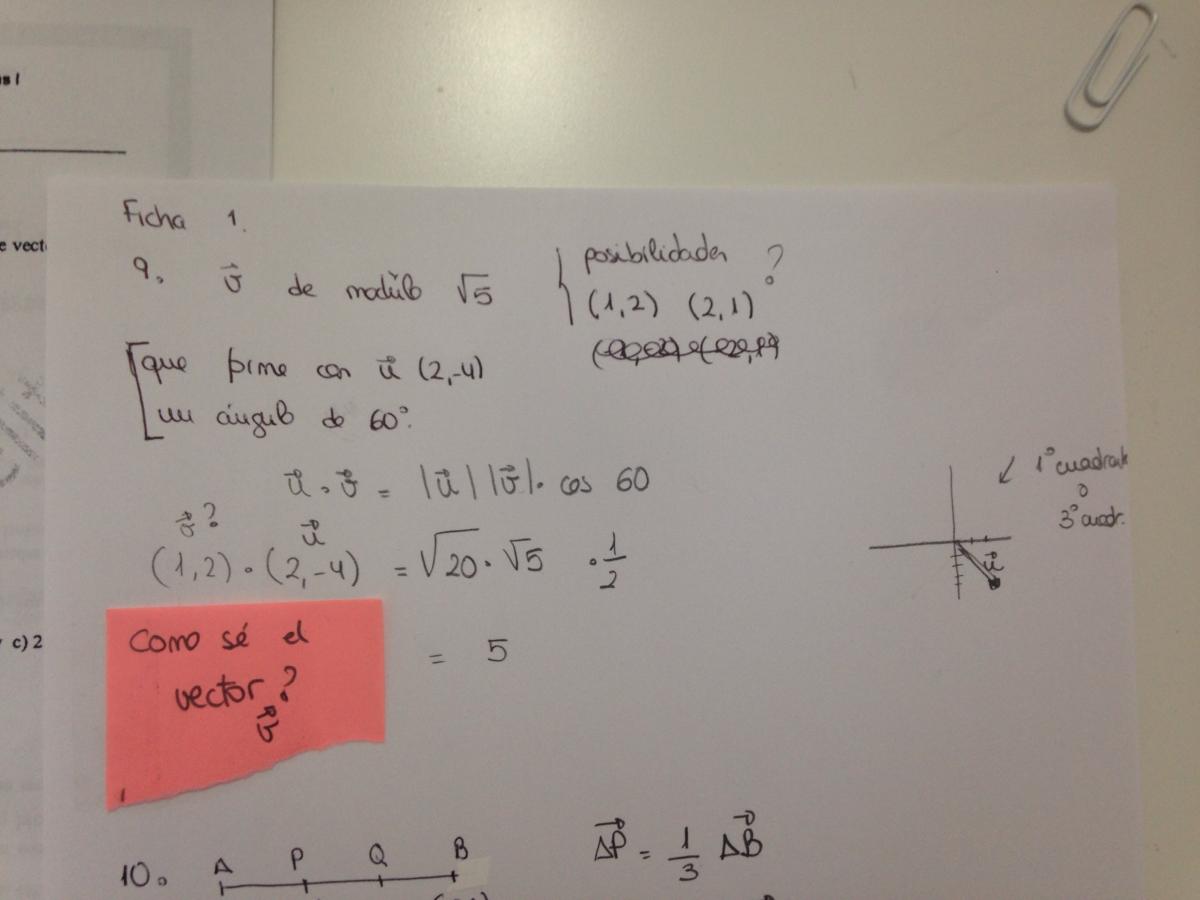 s I
e vect
c) 2
Ficha 1.
9. v⃗ de modúlo √5
posibilidades ?
(1,2) (2,1)
que forme con u⃗ (2,-4)
un ángulo de 60°.
u⃗ · v⃗ = |u⃗| |v⃗| · cos 60
v⃗? u⃗
(1,2) · (2,-4) = √20 · √5 · 1/2
= 5
Como sé el
vector?
v⃗
1º cuadrant
o
3º cuadr.
u⃗
10. A P Q B
AP⃗ = 1/3 AB⃗